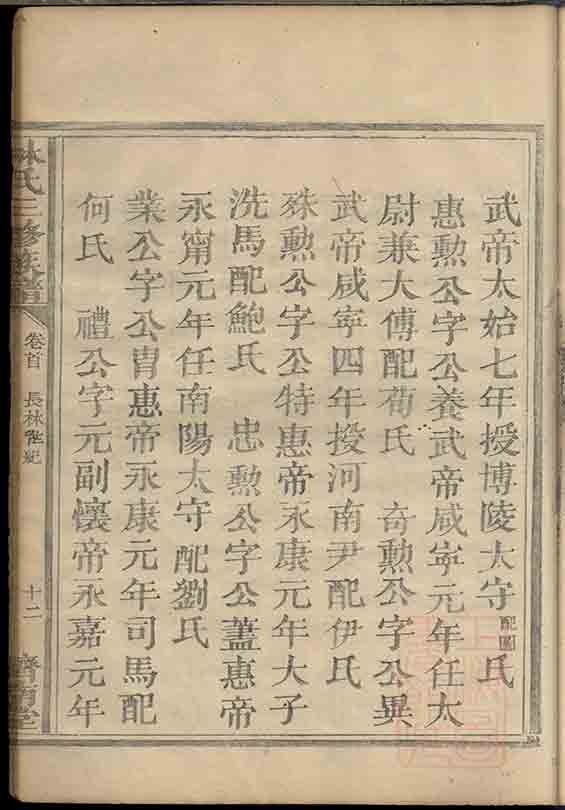 武帝太始七年授博陵太守配圖氏
惠勲公字公養武帝咸寜元年任太
尉兼大傅配荀氏 奇勲公字公異
武帝咸寜四年授河南尹配伊氏
殊勲公字公特惠帝永康元年大子
洗馬配鮑氏 忠勲公字公藎惠帝
永甯元年任南陽太守配劉氏
業公字公胄惠帝永康元年司馬配
何氏 禮公字元副懷帝永嘉元年
林氏三修族譜
卷首 長林世紀
十二
濟南堂